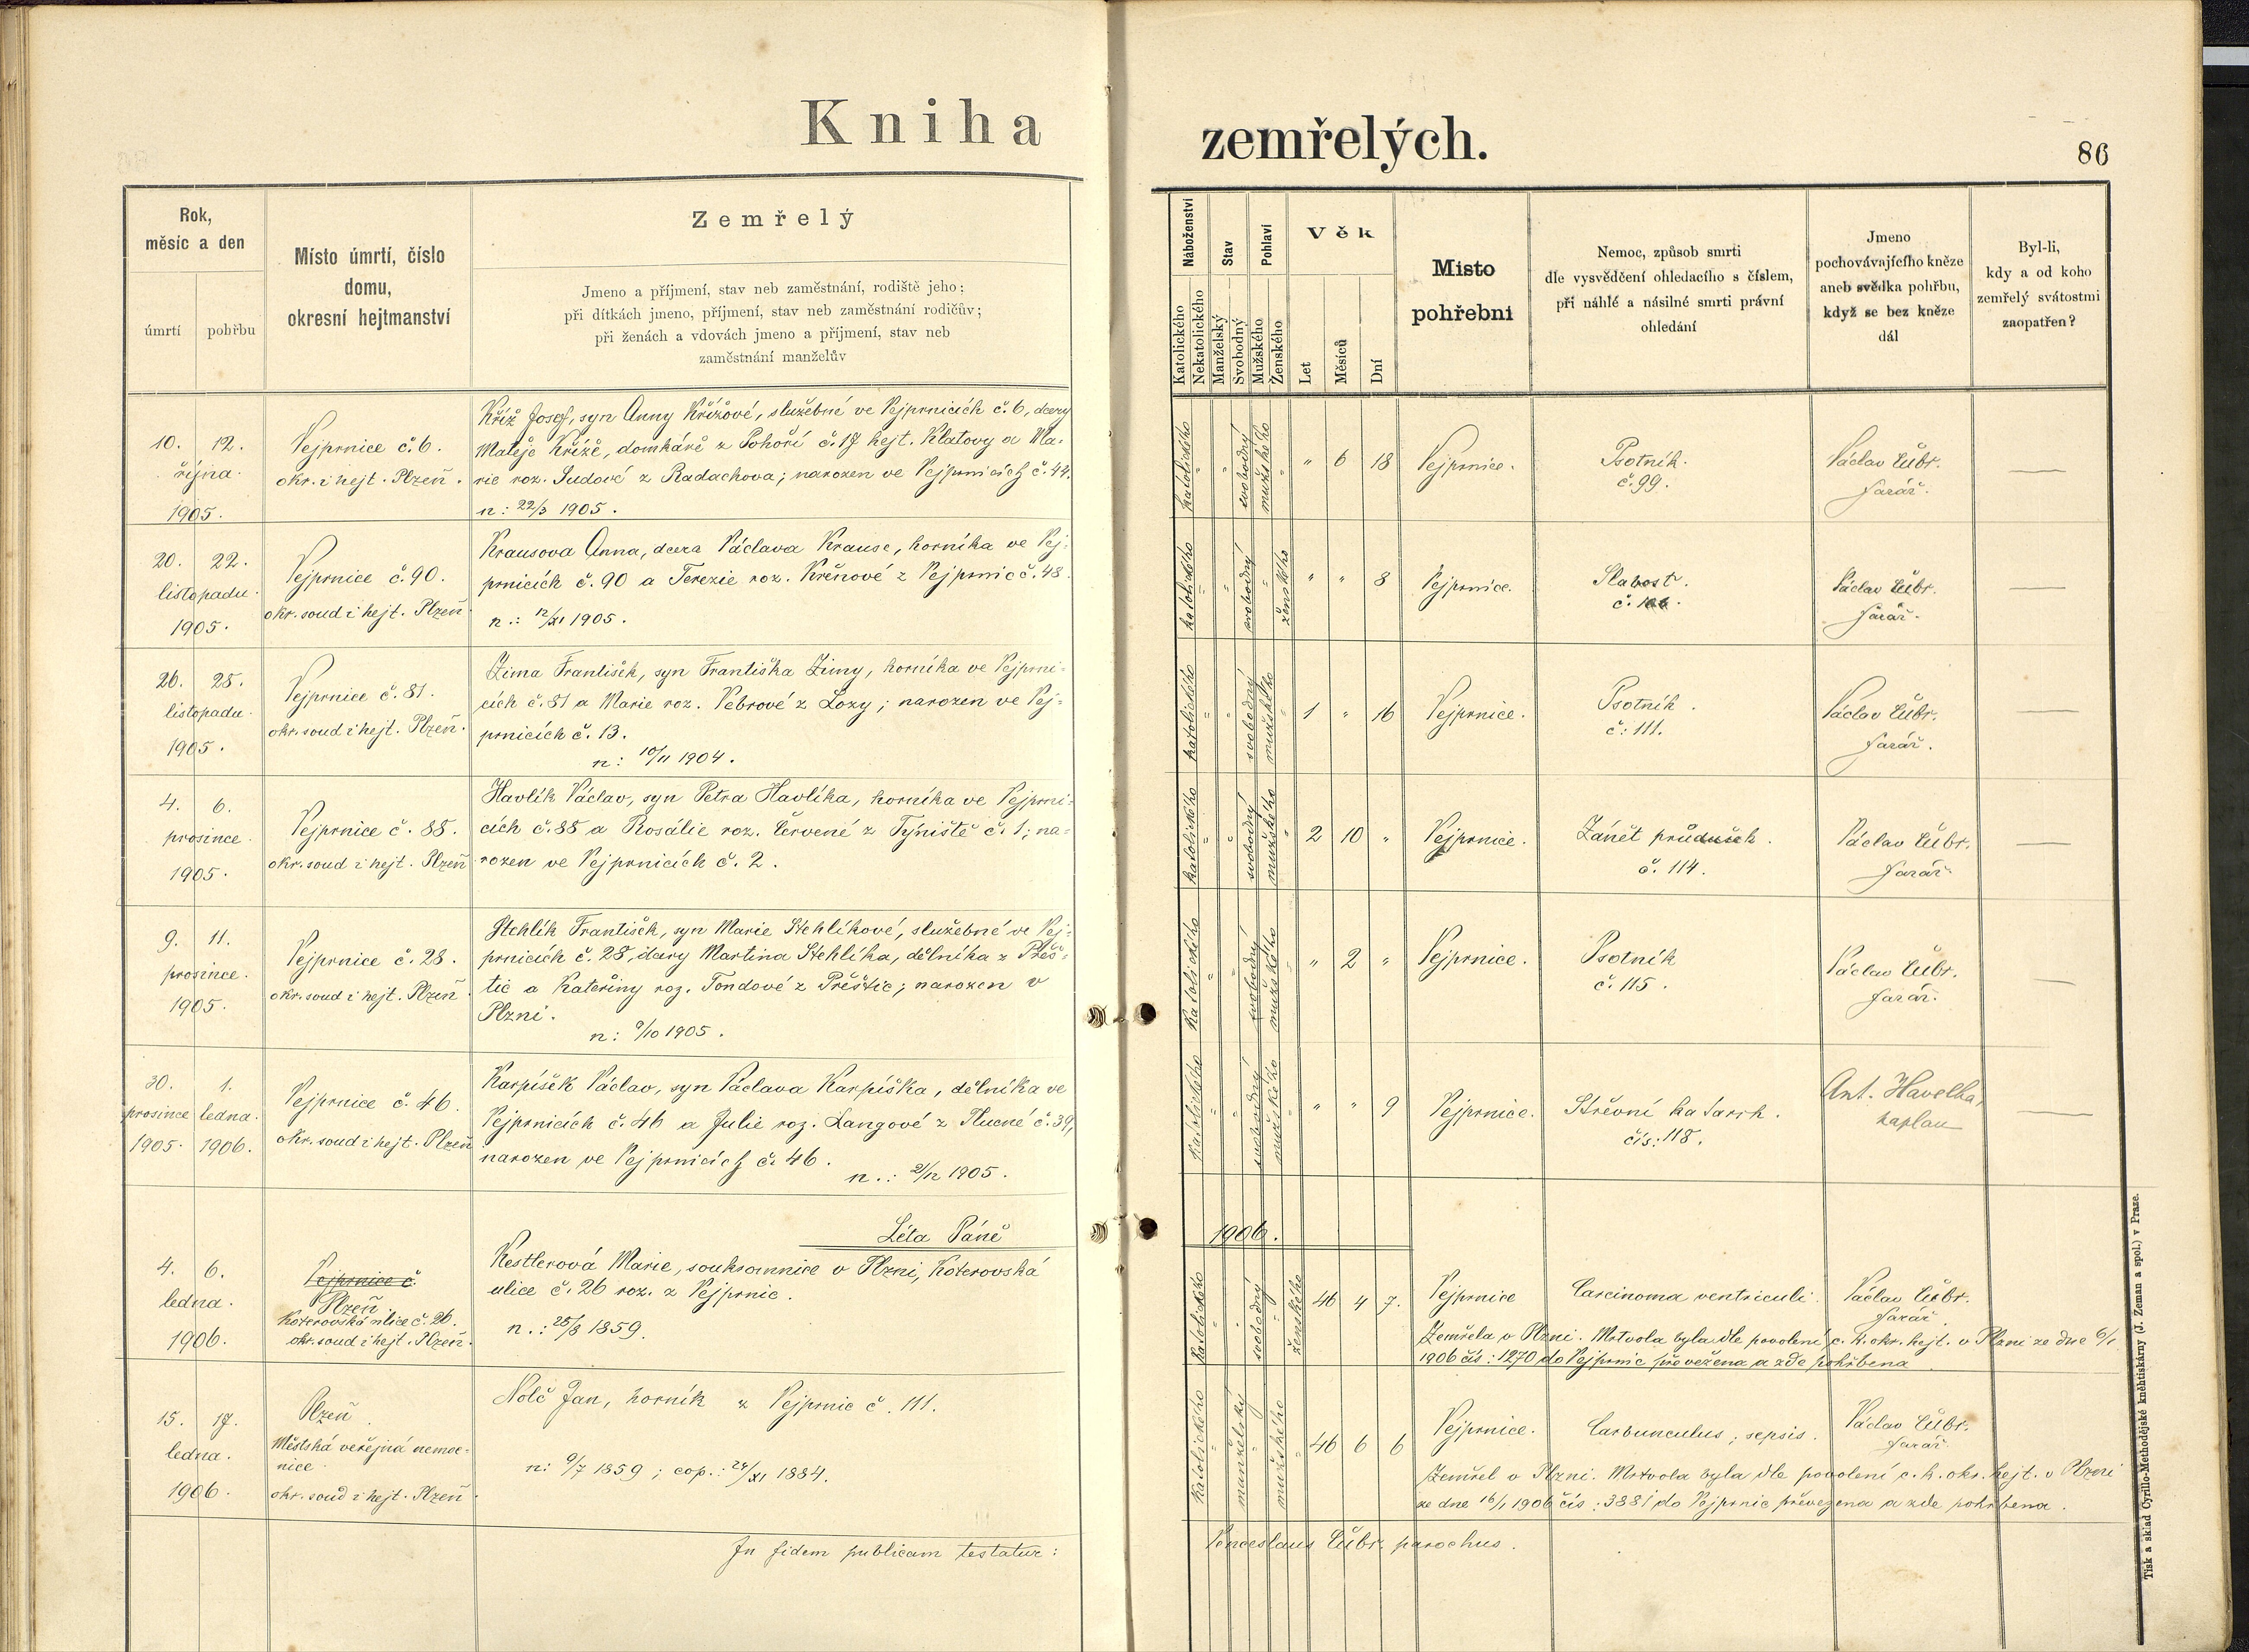 Kniha zemřelých.
86
Rok,
měsíc a den
úmrtí
pohřbu
Místo úmrtí, číslo
domu,
okresní hejtmanství
Zemřelý
Jmeno a příjmení, stav neb zaměstnání, rodiště jeho;
při dítkách jmeno, příjmení, stav neb zaměstnání rodičův;
při ženách a vdovách jmeno a příjmení, stav neb
zaměstnání manželův
Náboženství
Katolického
Nekatolického
Stav
Manželský
Svobodný
Pohlaví
Mužského
Ženského
Věk
Let
Měsíců
Dní
Místo
pohřební
Nemoc, způsob smrti
dle vysvědčení ohledacího s číslem,
při náhlé a násilné smrti právní
ohledání
Jmeno
pochovávajícího kněze
aneb svědka pohřbu,
když se bez kněze
dál
Byl-li,
kdy a od koho
zemřelý svátostmi
zaopatřen?
10. 12.
října
1905.
Vejprnice č. 6.
okr. i hejt. Plzeň.
Kříž Josef, syn Anny Křížové, služebné ve Vejprnicích č. 6, dcery
Matěje Kříže, domkáře z Pohoří č. 17 hejt. Klatovy a Ma-
rie roz. Sudové z Radachova; narozen ve Vejprnicích č. 44.
n: 22/3 1905.
katolického
svobodný
mužského
" 6 18
Vejprnice.
Psotník.
č. 99.
Václav Čubr.
farář.
20. 22.
listopadu
1905.
Vejprnice č. 90.
okr. soud i hejt. Plzeň
Krausova Anna, dcera Václava Krause, horníka ve Vej-
prnicích č. 90 a Terezie roz. Křenové z Vejprnic č. 48.
n.: 12/XI 1905.
katolického
svobodný
ženského
" " 8
Vejprnice.
Slabost.
č. 106.
Václav Čubr.
farář.
26. 28.
listopadu
1905.
Vejprnice č. 81.
okr. soud i hejt. Plzeň.
Zima František, syn Františka Zimy, horníka ve Vejprni-
cích č. 81 a Marie roz. Vebrové z Lozy; narozen ve Vej-
prnicích č. 13.
n: 10/11 1904.
katolického
svobodný
mužského
1 " 16
Vejprnice.
Psotník.
č: 111.
Václav Čubr.
farář.
4. 6.
prosince
1905.
Vejprnice č. 88.
okr. soud i hejt. Plzeň
Havlík Václav, syn Petra Havlíka, horníka ve Vejprni-
cích č. 88 a Rosálie roz. Červené z Týniště č. 1; na-
rozen ve Vejprnicích č. 2.
katolického
svobodný
mužského
2 10 "
Vejprnice.
Zánět průdušek.
č. 114.
Václav Čubr.
farář
9. 11.
prosince.
1905.
Vejprnice č. 28.
okr. soud i hejt. Plzeň
Stehlík František, syn Marie Stehlíkové, služebné ve Vej-
prnicích č. 28, dcery Martina Stehlíka, dělníka z Přeš-
tic a Kateřiny roz. Tondové z Přeštic; narozen v
Plzni.
n: 9/10 1905.
katolického
svobodný
mužského
" 2 "
Vejprnice.
Psotník
č. 115.
Václav Čubr.
farář.
30. 1.
prosince ledna.
1905. 1906.
Vejprnice č. 46.
okr. soud i hejt. Plzeň
Karpíšek Václav, syn Václava Karpíška, dělníka ve
Vejprnicích č. 46 a Julie roz. Langové z Tlucné č. 39,
narozen ve Vejprnicích č. 46.
n.: 21/12 1905.
katolického
svobodný
mužského
" " 9
Vejprnice.
Střevní katarrh.
čís: 118.
Ant. Havelka,
kaplan
Léta Páně 1906.
4. 6.
ledna.
1906.
Vejprnice č.
Plzeň
Koterovská ulice č. 26.
okr. soud i hejt. Plzeň.
Kestlerová Marie, soukromnice v Plzni, Koterovská
ulice č. 26 roz. z Vejprnic.
n.: 28/8 1859.
katolického
svobodný
ženského
46 4 7.
Vejprnice
Carcinoma ventriculi.
Václav Čubr.
farář
Zemřela v Plzni. Mrtvola byla dle povolení c. k. okr. hejt. v Plzni ze dne 6/1
1906 čís: 1270 do Vejprnic převežena a zde pohřbena
15. 17.
ledna.
1906.
Plzeň.
Městská veřejná nemoc-
nice.
okr. soud i hejt. Plzeň.
Nolč Jan, horník z Vejprnic č. 111.
n: 9/7 1859; cop.: 24/XI 1884.
katolického
manželský
mužského
46 6 6
Vejprnice.
Carbunculus; sepsis.
Václav Čubr.
farář.
Zemřel v Plzni. Mrtvola byla dle povolení c. k. okr. hejt. v Plzni
ze dne 16/1 1906 čís: 3881 do Vejprnic převezena a zde pohřbena.
In fidem publicam testatur: Venceslaus Čubr parochus.
Tisk a sklad Cyrillo-Methodějské knihtiskárny (J. Zeman a spol.) v Praze.